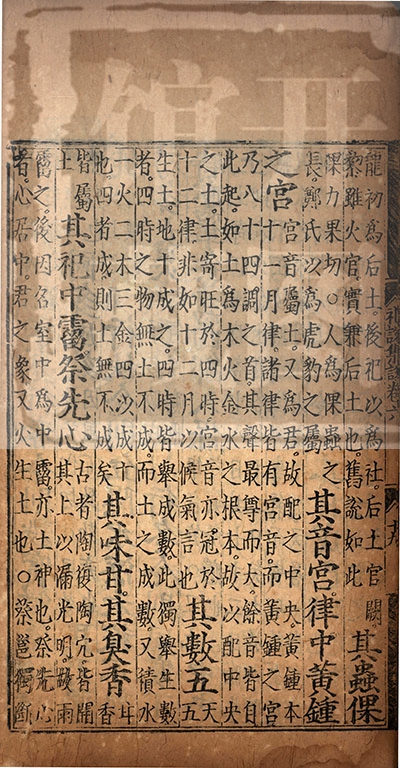 龍初爲后土。後祀以爲社。后土官闕。
黎雖火官。實兼后土也。舊說如此
其蟲倮
倮力果切。○人爲倮蟲之
長。鄭氏以爲虎豹之屬
其音宮。律中黃鍾
之宮
宮音屬土。又爲君。故配之中央。黃鍾本
十一月律。諸律皆有宮音。而黃鍾之宮
乃八十四調之首。其聲最尊而大。餘音皆自
此起。如土爲木火金水之根本。故以配中央
之土。土寄旺於四時。宮音亦冠於
十二律。非如十二月以候氣言也
其數五
天五
生土。地十成之。四時皆舉成數。此獨舉生數
者。四時之物無土不成。而土之成數又積水
一火二木三金四以成十
也。四者成則土無不成矣
其味甘。其臭香
甘香
皆屬
土
其祀中霤。祭先心
古者陶復陶穴。皆開
其上以漏光明。故雨
霤之。後因名室中爲中霤。亦土神也。祭先心
者。心居中。君之象。又火生土也。○蔡邕獨斷